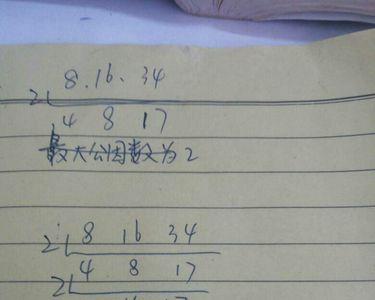 8. 16. 34
2
4 8 17
最大公因数为2
2 8 16 34
2 4 8 17